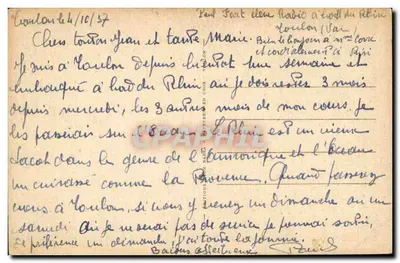 Toulon le 4/10/37
Paul Feat élève Radio à bord du Rhin
Toulon (Var)
Bien le bonjour à Mme
et cordialement à
Chers tonton Jean et tante Marie
Je suis à Toulon depuis bientôt une semaine et
embarqué à bord du Rhin où je dois rester 3 mois
depuis mercredi, les 3 autres mois de mon cours je
les passerai sur l'. Le Rhin est un vieux
sacot dans le genre de l'Armorique et l'
un cuirassé comme la Provence. Quand passerez
vous à Toulon, si vous y venez un dimanche ou un
samedi où je ne serai pas de service je pourrai sortir,
de préférence un dimanche j'ai toute la journée.
Baisers affectueux Paul
CPAPHIL